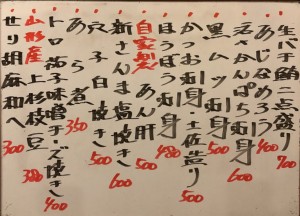 生バチ鮪二点盛り 700
あじなめろう 400
天然かんぱち刺身 600
黒ムツ刺身 500
かつお刺身・土佐造り 500
ほうぼう刺身 480
自家製 あん肝 500
新さんま塩焼き 600
穴子白焼き 500
あら煮 350
トロ茄子味噌チーズ焼き 400
山形産 上杉枝豆 380
せり胡麻和へ 300